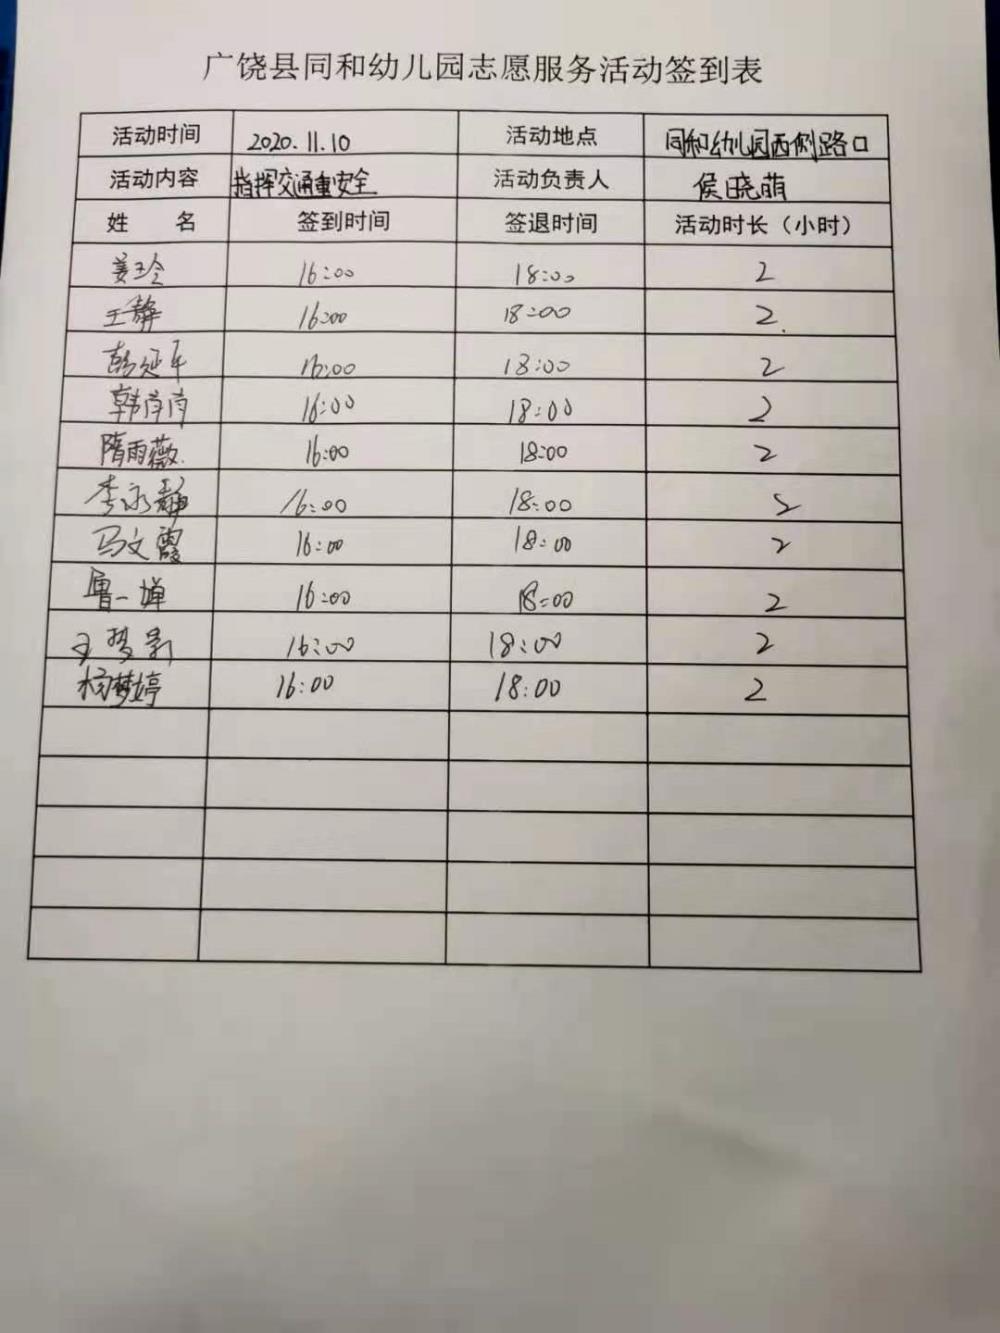 广饶县同和幼儿园志愿服务活动签到表
活动时间 2020.11.10 活动地点 同和幼儿园西侧路口
活动内容 指挥交通重安全 活动负责人 侯晓萌
姓 名 签到时间 签退时间 活动时长（小时）
姜玲 16:00 18:00 2
王静 16:00 18:00 2
延平 16:00 18:00 2
韩肖肖 16:00 18:00 2
隋雨薇 16:00 18:00 2
李永静 16:00 18:00 2
马文霞 16:00 18:00 2
一婵 16:00 18:00 2
王梦影 16:00 18:00 2
杨梦婷 16:00 18:00 2